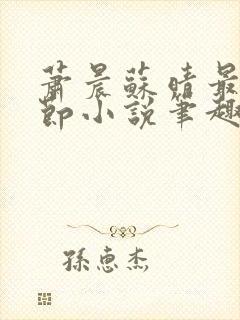 蕭晨蘇晴最
節小說筆趣
孫惠杰